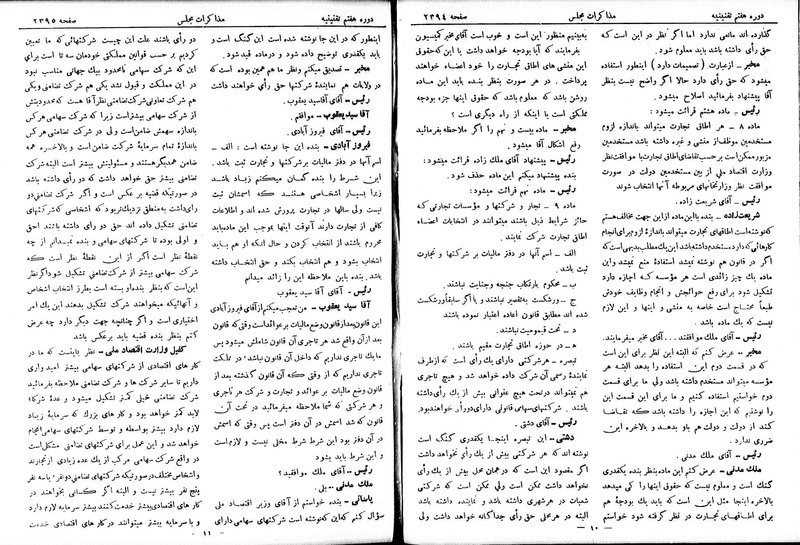 دوره هفتم تقنینیه
مذاکرات مجلس
صفحه ۲۳۹۴
گذارده اند مانعی ندارد اما اگر نظر در این است که
حق رأی داشته باشد باید معلوم شود.
مخبر ــ ازعبارت (تصمیمات دارد) اینطور استفاده
میشود که حق رأی دارد حالا اگر واضح نیست بنظر
آقا پیشنهاد بفرمائید اصلاح میشود.
رئیس ــ ماده هشتم قرائت میشود:
ماده ۸ ــ هر اطاق تجارت میتواند باندازه لزوم
مستخدمین موظف از منشی و غیره داشته باشد مستخدمین
مزبور ممکن است برحسب تقاضای اطاق تجارت با موافقت نظر
وزارت اقتصاد ملی از بین مستخدمین دولت در صورت
موافقت نظر وزارتخانهای مربوطه آنها انتخاب شوند
رئیس ــ آقای شریعت زاده
شریعت‌زاده ــ بنده با این ماده از این جهت مخالف هستم
که نوشته است اطاقهای تجارت میتواند باندازهٔ لزوم برای انجام
کارهائی که دارد مستخدم داشته باشد این یک مطلب بدیهی است که
اگر در قانون هم نوشته نمیشد استفادهٔ منع نمیشد و این
ماده یک چیز زائدی است هر مؤسسه که اجازه دارد
تشکیل شود برای رفع حوائجش و انجام وظایف خودش
طبعاً محتاج است خاصه به منشی و اینها و این لازم
نیست که یک ماده باشد.
رئیس ــ آقای ملک موافقند... آقای مخبر میفرمایند.
مخبر ــ عرض کنم که البته این نظر برای این است
که در قسمت دوم این استفاده را بدهد البته هر
مؤسسه میتواند مستخدم داشته باشد ولی ما برای قسمت
دوم خواستیم استفاده کنیم و ما برای این قسمت این
را نوشتیم که این اجازه را داشته باشد که تقاضا
کنند از دولت و دولت هم باو بدهد و بالاخره این
ضرری ندارد.
رئیس ــ آقای ملک مدنی.
ملک مدنی ــ عرض کنم این ماده بنظر بنده یکقدری
گنک است و معلوم نیست که حقوق اینها را کی میدهد
بالاخره اینجا مثل این است که باید یک بودجهٔ هم
برای اطاقهای تجارت در نظر گرفته شود خواستم
به‌بینیم منظور این است و خوب است آقای مخبر کمیسیون
بفرمایند که آیا بودجه خواهد داشت یا این که حقوق
این منشی های اطاق تجارت را خود اعضاء خواهند
پرداخت. در هر صورت بنظر بنده باید این ماده
روشن باشد که معلوم باشد که حقوق اینها جزء بودجه
مملکتی است یا اینکه از راه دیگری است؟
مخبر ــ ماده بیست و نهم را اگر ملاحظه بفرمائید
رفع اشکال آقا میشود.
رئیس ــ پیشنهاد آقای ملک زاده قرائت میشود:
بنده پیشنهاد میکنم این ماده حذف شود.
رئیس ــ ماده نهم قرائت میشود:
ماده ۹ ــ تجار و شرکتها و مؤسسات تجارتی که
حائز شرایط ذیل باشند میتوانند در انتخابات اعضاء
اطاق تجارت شرکت نمایند.
الف ــ اسم آنها در دفتر مالیات بر شرکتها و تجارت
ثبت باشد.
ب ــ محکوم بارتکاب جنحه وجنایت نباشند.
ج ــ ورشکست به‌تقصیر نباشند و یا اگر سابقاً ورشکست
شده اند مطابق قانون اعاده اعتبار نموده باشند
د ــ تحت قیمومیت نباشند.
ه ــ در حوزه اطاق تجارت مقیم باشند.
تبصره ــ هر شرکتی دارای یک رأی است که از طرف
نماینده رسمی آن شرکت داده خواهد شد و هیچ تاجری
هم نمیتواند در تحت هیچ عنوانی بیش از یک رأی داشته
باشد. شرکتهای سهامی قانونی دارای دو رأی خواهند بود.
رئیس ــ آقای دشتی.
دشتی ــ این تبصره اینجا یکقدری گنگ است
نوشته اند که هر شرکتی بیش از یک رأی نخواهد داشت
اگر مقصود این است که در همان محل بیش از یک رأی
نخواهد داشت ممکن است ولی ممکن است که شرکتی
شعبات در هر شهری داشته باشد و نماینده داشته باشد
البته در هر محلی حق رأی جداگانه خواهد داشت ولی
ــ ۱۰ ــ
دوره هفتم تقنینیه
مذاکرات مجلس
صفحه ۲۳۹۵
اینطور که در این جا نوشته شده است این گنگ است و
باید یکقدری توضیح داده شود و در ماده قید شود.
مخبر ــ تصدیق میکنم ونظر ما هم همین بوده است که
در ولایات هم نمایندهٔ شرکتها حق رأی خواهند داشت
رئیس ــ آقای آقا سید یعقوب.
آقا سید یعقوب ــ موافقم.
رئیس ــ آقای فیروز آبادی.
فیروز آبادی ــ بنده این جا نوشته است: الف ــ
اسم آنها در دفتر مالیات برشرکتها و تجارت ثبت باشد.
این شرط را بنده گمان میکنم زیاد باشد
زیرا بسیار اشخاصی هستند که اسمشان ثبت
نیست ولی سالها در تجارت پرورش شده اند و اطلاعات
کافی از تجارت دارند آنوقت اینها بموجب این ماده باید
محروم باشند از انتخاب کردن و حال آنکه او هم باید
انتخاب بشود و هم انتخاب بکند و حق انتخاب داشته
باشد. بنده باین ملاحظه این را زائد میدانم
رئیس ــ آقای آقا سید یعقوب
آقا سید یعقوب ــ من تعجب میکنم از آقای فیروز آبادی
این قانون بعد از قانون وضع مالیات بر عوائد است وقتی که قانون
بعد از آن واقع شد هر تاجری آن قانون شاملش میشود پس
ما یک تاجری نداریم که داخل آن قانون نباشد. در مملکت
تاجری نداریم که از وقتی که آن قانون گذشته بعد از
قانون وضع مالیات بر عوائد و تجارت و شرکت هر تاجری
و هر شرکتی که شما ملاحظه میفرمائید در تحت آن
قانون که شد اسمش در آن دفتر است پس وقتی که اسمش
در آن دفتر بود این شرط شرط مخلی نیست و لازم است
و این شرط باید بشود
رئیس ــ آقای ملک موافقید؟
ملک مدنی ــ بلی.
یاسائی ــ بنده خواستم از آقای وزیر اقتصاد ملی
سؤال کنم که این که نوشته است شرکتهای سهامی دارای
دو رأی باشند علت این چیست شرکتهائی که ما تعیین
کردیم بر حسب قوانین مملکتی خودمان سه تا است برای
این که شرکت سهامی نامحدود بیک جهاتی مناسب نبود
در این مملکت و قبول نشد یکی هم شرکت تضامنی ویکی
هم شرکت تعاونی شرکت تضامنی نظر آقا هست که محدودیتش
از شرکت سهامی بیشتر است زیرا که شرکت سهامی هرکس
باندازه سهمش ضامن است ولی در شرکت تضامنی هرکس
باندازهٔ تمام سرمایهٔ شرکت ضامن است و بالاخره همه
ضامن همدیگر هستند و مسئولیتش بیشتر است البته شرکت
تضامنی بیشتر حق خواهد داشت که دو رأی داشته باشد
در صورتیکه قضیه بر عکس است و اگر شرکت تضامنی دو
رأی داشت به‌منطق نزدیک‌تر بود که اشخاصی که شرکتهای
تضامنی تشکیل داده اند حق دو رأی داشته باشند احق
و اولی بوده تا شرکتهای سهامی و بنده نمیدانم از چه
نقطهٔ نظر است اگر از این نقطهٔ نظر است که
شرکت سهامی بیشتر از شرکت تضامنی تشکیل شود اگر نظر
این است که بنظر بنده او بسته است بطرز انتخاب اشخاص
و آنهائیکه میخواهند شرکت تشکیل بدهند این یک امر
اختیاری است و اگر چنانچه جهت دیگر دارد چه عرض
کنم بنظر بنده قضیه باید بر عکس باشد
کفیل وزارت اقتصاد ملی ــ نظر باینست که ما در
کارهای اقتصادی از شرکتهای سهامی بیشتر امیدواری
داریم تا سایر شرکت ها و شرکت تضامنی ملاحظه بفرمائید
شرکت تضامنی خیلی کمتر تشکیل میشود و عدهٔ شرکاء
لابد کمتر خواهد بود و کار های بزرگ که سرمایهٔ زیاد
لازم دارد بیشتر بواسطه و توسط شرکتهای سهامی انجام
خواهد شد و این عمل برای شرکتهای تضامنی مشکل است
در واقع شرکت سهامی مرکب از یک عده زیادی از تجارند
و اشخاص مختلف در صورتیکه شرکتهای تضامنی دو نفر. یا سه نفر
پنج نفر بیشتر نیست و البته اگر کسانی بخواهند در
کارهای اقتصادی بیشتر خدمت کنند بیشتر سرمایه لازم دارد
و با سرمایه بیشتر میتوانند در کارهای اقتصادی خدمت
ــ ۱۱ ــ